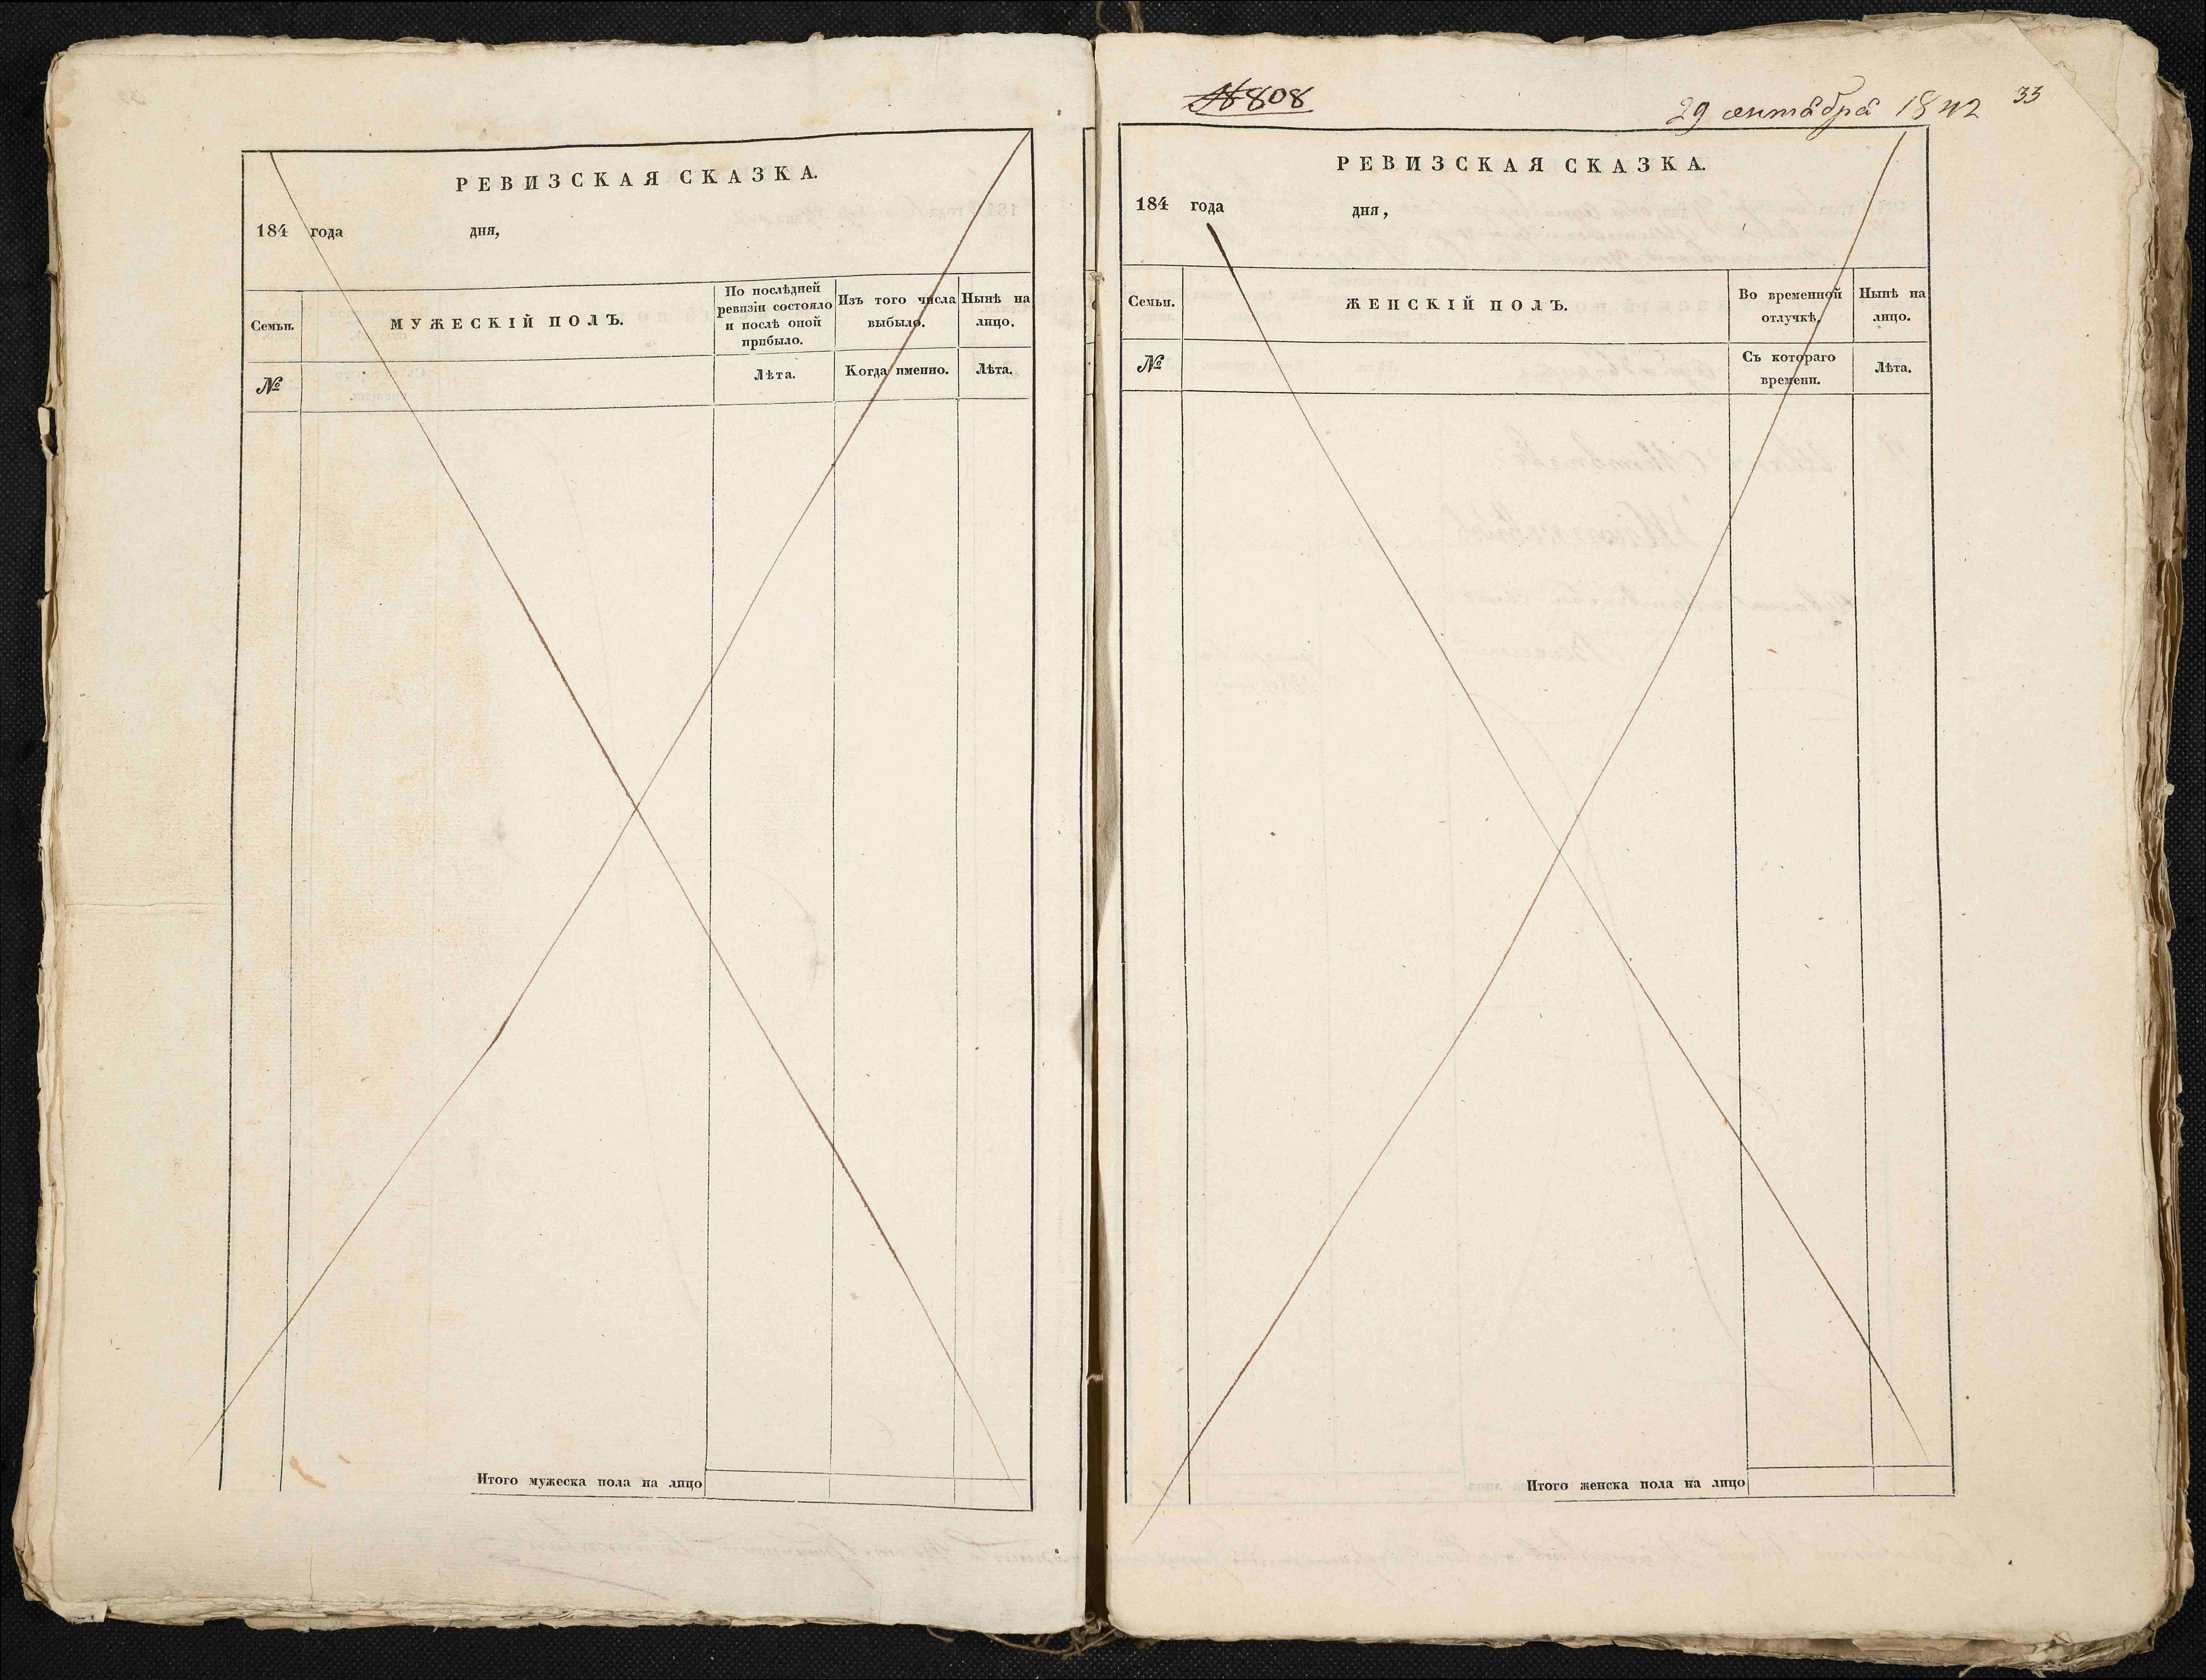 РЕВИЗСКАЯ СКАЗКА.
184 года дня,
Семьи.
МУЖЕСКІЙ ПОЛЪ.
По послѣдней
ревизіи состояло
и послѣ оной
прибыло.
Изъ того числа
выбыло.
Нынѣ на
лицо.
№
Лѣта.
Когда именно.
Лѣта.
Итого мужеска пола на лицо
№ 808
29 октября 1842
33
РЕВИЗСКАЯ СКАЗКА.
184 года дня,
Семьи.
ЖЕНСКІЙ ПОЛЪ.
Во временной
отлучкѣ.
Нынѣ на
лицо.
№
Съ котораго
времени.
Лѣта.
Итого женска пола на лицо